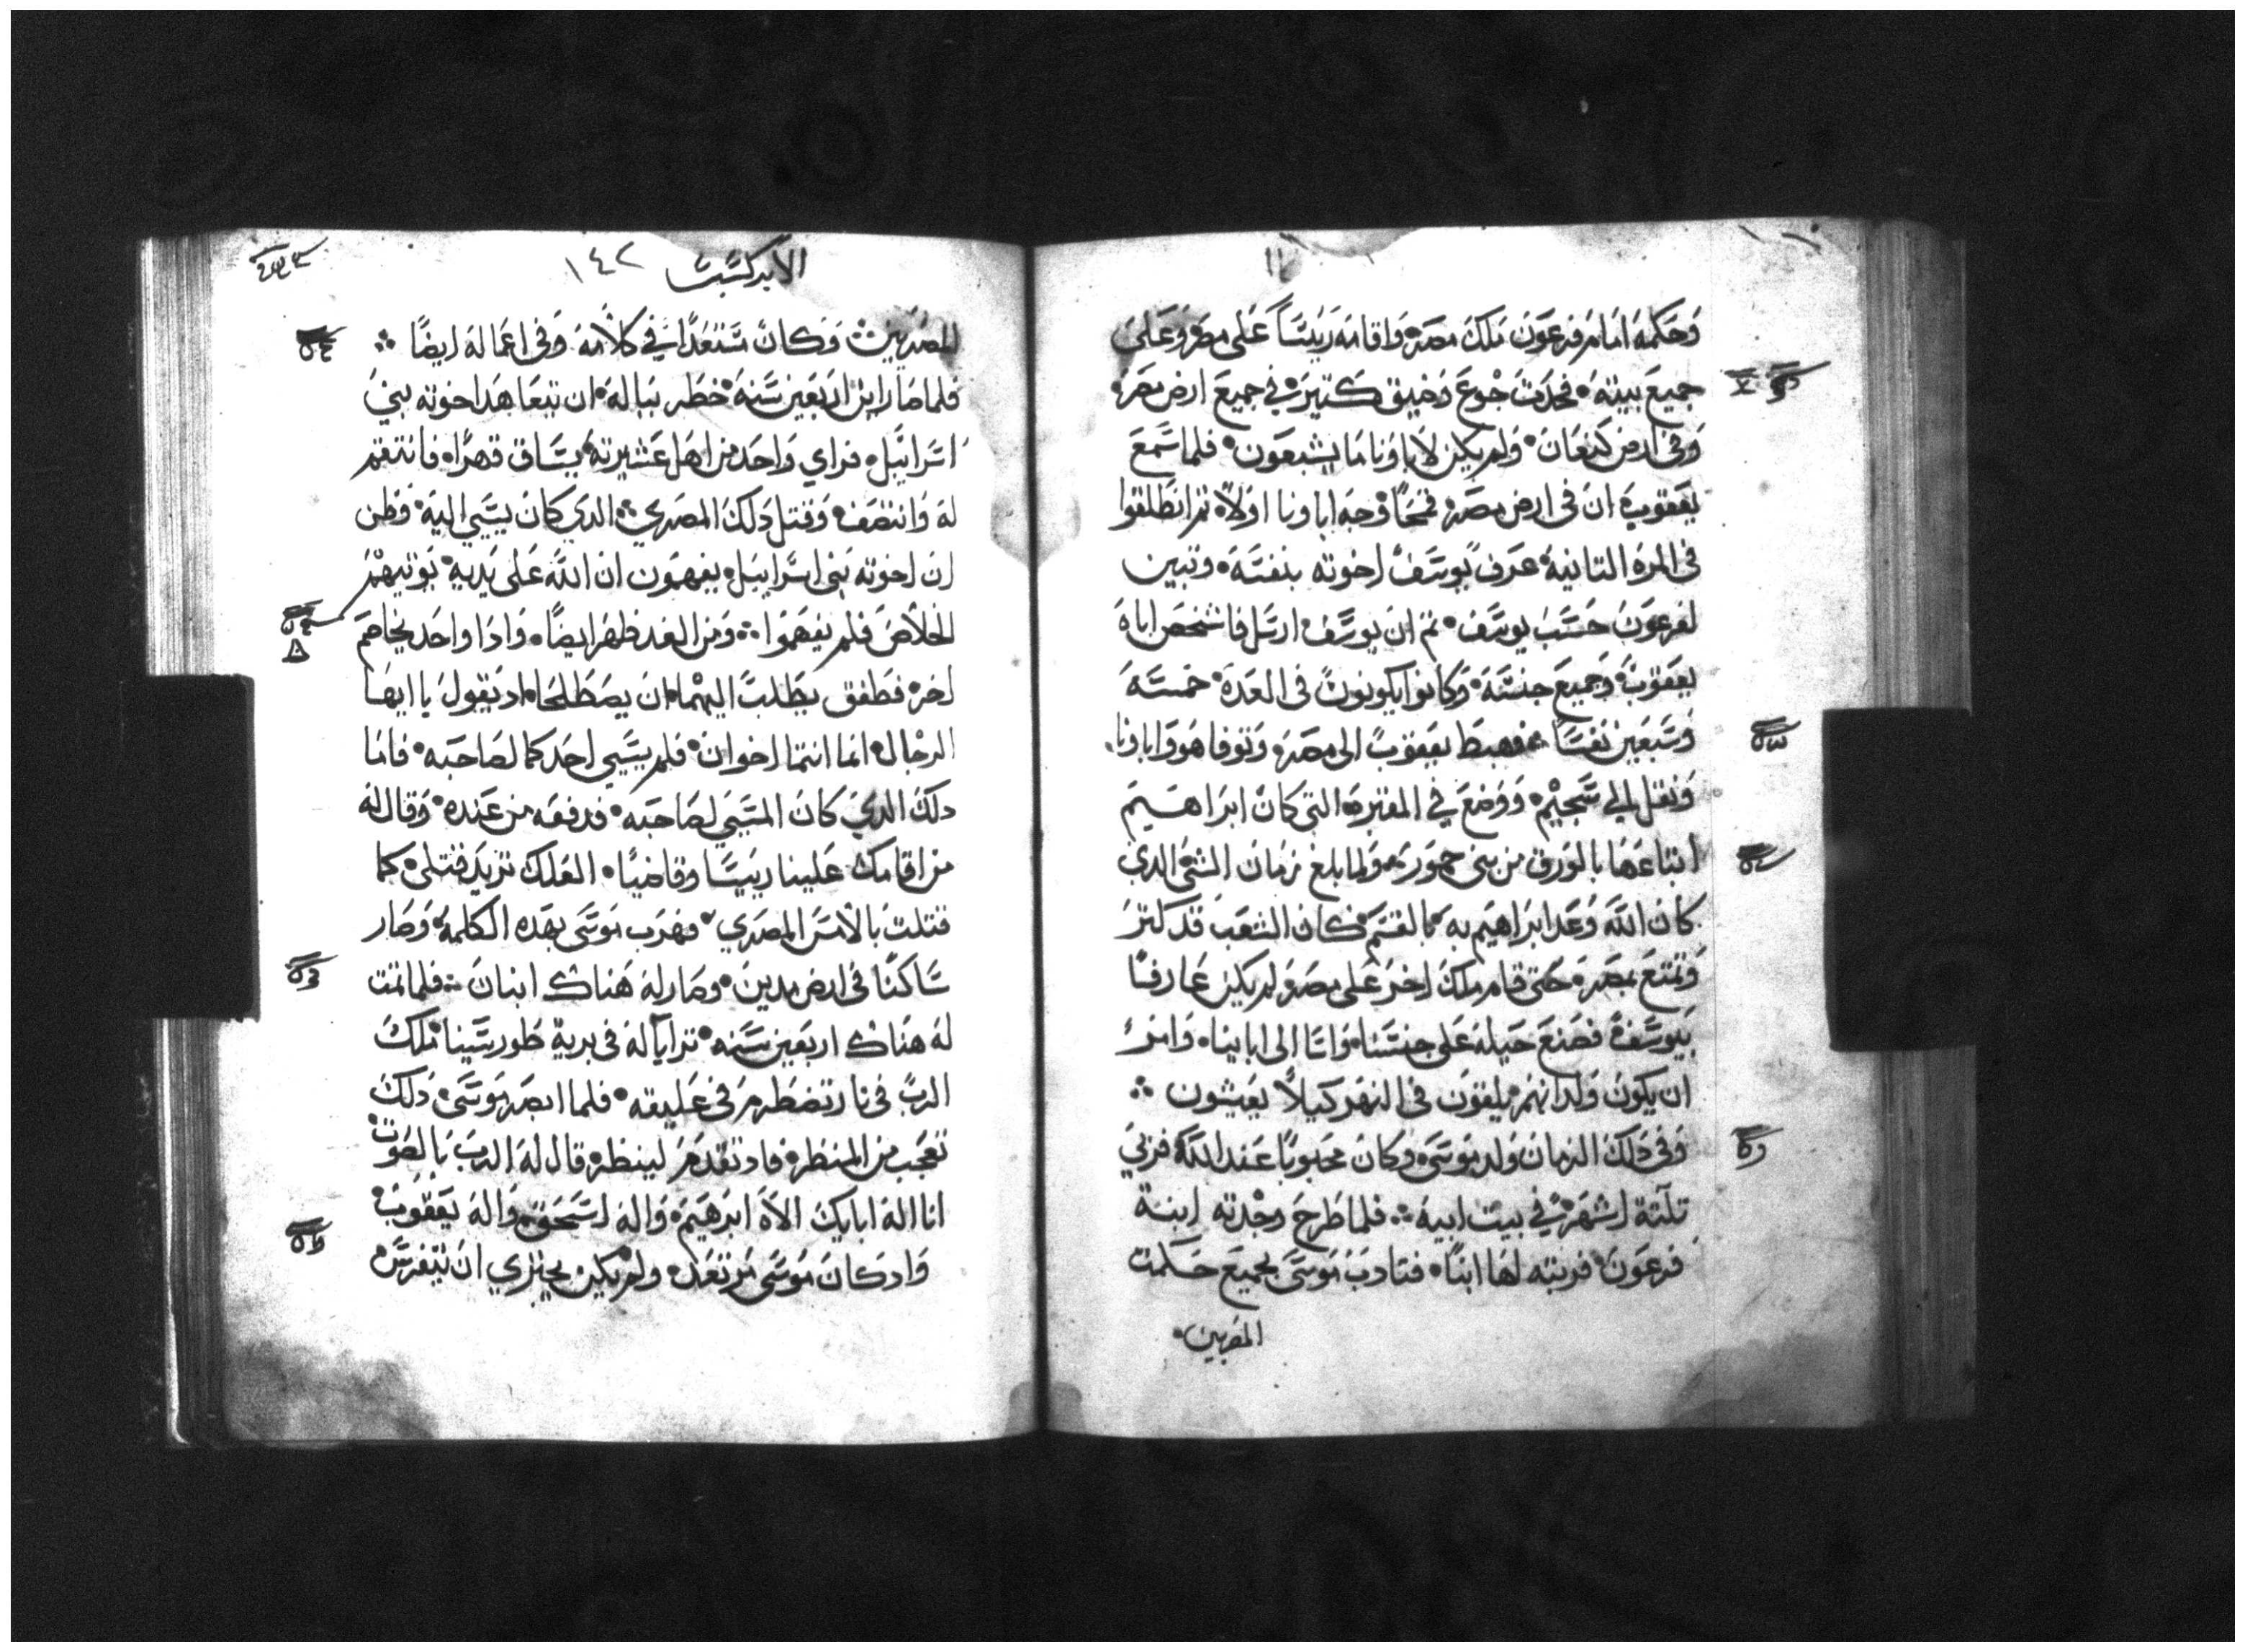 وَحكمه امام فرعون ملك مصر واقامه ريئسًا على مصر وعلى
جميع بيته فحدث جوع وضيق كتير في جميع ارض مصر
وفى ارض كنعان ولم يكن لاباونا ما يشبعون فلما سمع
يعقوب ان فى ارض مصر قمحًا وجه اباونا اولاً تم انطلقوا
فى المره التانية عرف يوسف اخوته بنفسه وتبين
لفرعون حسب يوسف تم ان يوسف ارسل فاشخص اباه
يعقوب وجميع جنسه وكانوا يكونون فى العدة خمسة
وسبعين نفسًا فهبط يعقوب الى مصر وتوفا هو واباونا
ونقل الي شجيم ووضع في المقبره التى كان ابراهيم
ابتاعها بالورق من بنى حمور ولما بلغ زمان الشى الدى
كان الله وعد ابراهيم به بالقسم فكان الشعب قد كتر
وتمتع بمصر حتى قام ملك اخر على مصر لم يكن عارفًا
بيوسف فصنع حيله على جنسنا واسا الى ابابينا وامر
ان يكون ولدانهم يلقون فى النهر كيلا يعيشون
وفى دلك الزمان ولد موسى وكان محبوبًا عند الله فربي
تلتة اشهر في بيت ابيه فلما طرح وجدته ابنة
فرعون فربته لها ابنًا فتادب موسى بجميع حكمت
المصريين
الابركسيت ١٤٢
المصريين وكان مستعدًا في كلامه وفى اعماله ايضًا
فلما صار ابن اربعين سنه خطر بباله ان يتعاهد اخوته بني
اسراييل فراي واحد من اهل عشيرته يساق قهرًا فانتقم
له وانتصف وقتل دلك المصري الدي كان يسي اليه وظن
ان اخوته بني اسراييل يفهمون ان الله على يديه يوتيهم
الخلاص فلم يفهموا ومن الغد ظهر ايضًا وادا واحد يخاصم
اخر فطفق يطلب اليهما ان يصطلحا اد يقول يا ايها
الرجال انما انتما اخوان فلم يسي احدكما لصاحبه فاما
دلك الدي كان المسي لصاحبه فدفعه من عنده وقال له
من اقامك علينا رييسًا وقاضيًا العلك تريد قتلى كما
قتلت بالامس المصري فهرب موسى بهده الكلمه وصار
ساكنًا فى ارض مدين وصار له هناك ابنان فلما تمت
له هناك اربعين سنه ترايا له فى برية طور سينا ملك
الرب فى نار تضطرم فى عليقه فلما ابصر موسى دلك
تعجب من المنظر فاد تقدم لينظر قال له الرب بالصوت
انا اله ابايك الاه ابرهيم واله اسحق واله يعقوب
واد كان موسى مرتعد ولم يكن يجتري ان يتفرس